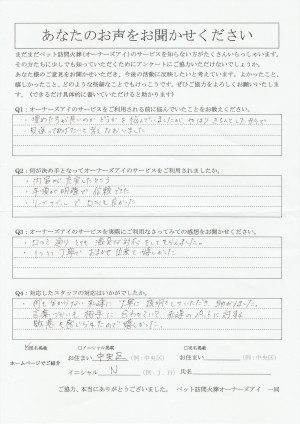 あなたのお声をお聞かせください
まだまだペット訪問火葬(オーナーズアイ)のサービスを知らない方がたくさんいらっしゃいます。
その方たちに少しでも知っていただくためにアンケートにご協力いただけないでしょうか。
あなた様のご意見をお聞かせいただき、今後の活動に反映したいと考えています。よかったこと、
嬉しかったこと、どのような些細なことでもけっこうです。ぜひご協力をよろしくお願いいたしま
す。(できるだけ具体的に書いていただけると助かります)
Q1:オーナーズアイのサービスをご利用される前に悩んでいたことをお教えください。
・埋めた方が良いのか どうかを 悩んでいましたが、やはり きちんとした形で
見送ってあげたいと
Q2:何が決め手となってオーナーズアイのサービスをご利用されましたか。
・内容が充実したところ
・料金が明確で信頼できた
・口コミも良かった
Q3:オーナーズアイのサービスを実際にご利用なさってみての感想をお聞かせください。
・口コミ通り とても 対応をしてもらえました。
・とても丁寧で お任せ出来て嬉しかった
Q4:対応したスタッフの対応はいかがでしたか。
・何も分からない私達に 丁寧に 説明をしていただき 助かりました。
言葉づかいも 相手に 合わせていて、私達のペットに対する
敬意も感じられたので嬉しかった。
匿名掲載 イニシャル掲載 実名掲載
ホームページでご紹介
お住まい 中央区 (例:中央区) お住まい (例:中央区)
イニシャル N (例:J.H) 氏名
ご協力、本当にありがとうございました。 ペット訪問火葬オーナーズアイ 一同